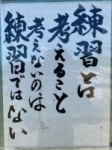 練習占
考えること
考えないのは
練習ではない